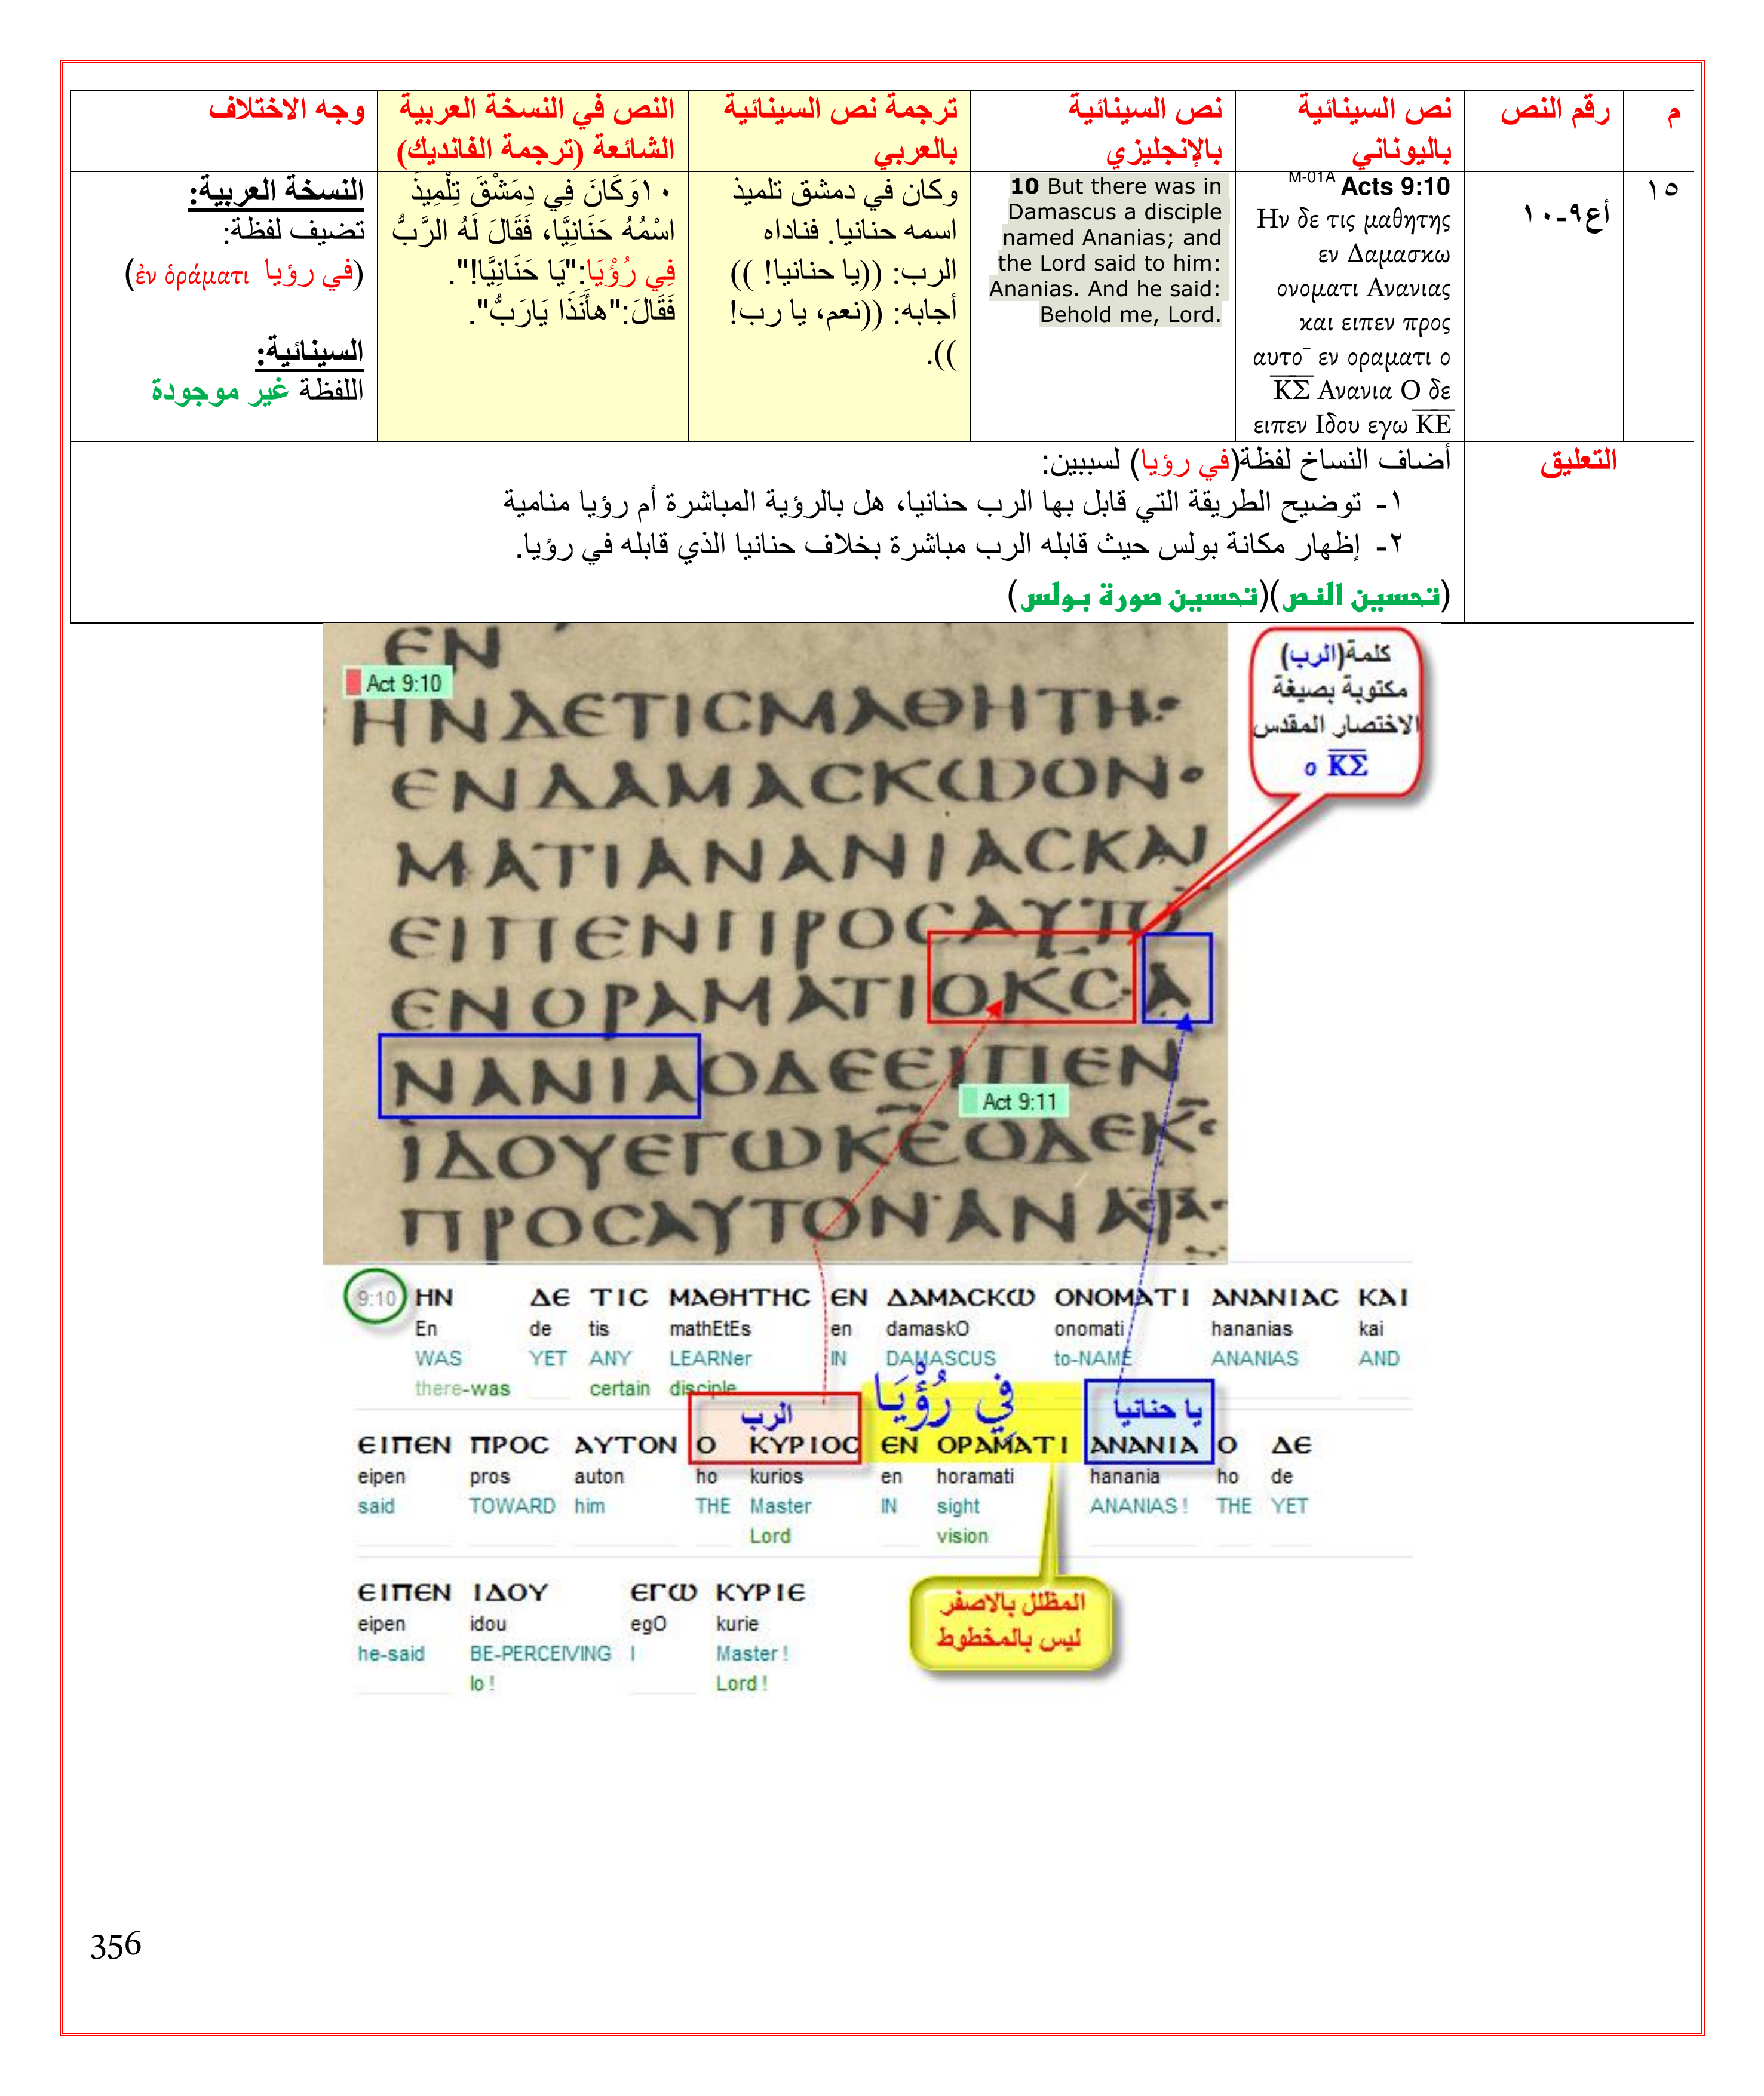 م
رقم النص
نص السينائية
باليوناني
نص السينائية
بالإنجليزي
ترجمة نص السينائية
بالعربي
النص في النسخة العربية
الشائعة (ترجمة الفانديك)
وجه الاختلاف
١٥
أع٩-١٠
M-01A Acts 9:10
Ην δε τις μαθητης
εν Δαμασκω
ονοματι Ανανιας
και ειπεν προς
αυτο¯ εν οραματι ο
Κ̅Σ̅ Ανανια Ο δε
ειπεν Ιδου εγω Κ̅Ε̅
10 But there was in
Damascus a disciple
named Ananias; and
the Lord said to him:
Ananias. And he said:
Behold me, Lord.
وكان في دمشق تلميذ
اسمه حنانيا. فناداه
الرب: ((يا حنانيا! ))
أجابه: ((نعم، يا رب!
)).
١٠وَكَانَ فِي دِمَشْقَ تِلْمِيذٌ
اسْمُهُ حَنَانِيَّا، فَقَالَ لَهُ الرَّبُّ
فِي رُؤْيَا:"يَا حَنَانِيَّا!".
فَقَالَ:"هأَنَذَا يَارَبُّ".
النسخة العربية:
تضيف لفظة:
(في رؤيا ἐν ὁράματι)
السينائية:
اللفظة غير موجودة
التعليق
أضاف النساخ لفظة(في رؤيا) لسببين:
١- توضيح الطريقة التي قابل بها الرب حنانيا، هل بالرؤية المباشرة أم رؤيا منامية
٢- إظهار مكانة بولس حيث قابله الرب مباشرة بخلاف حنانيا الذي قابله في رؤيا.
(تحسين النص)(تحسين صورة بولس)
كلمة(الرب)
مكتوبة بصيغة
الاختصار المقدس
ο Κ̅Σ̅
ЄΝ
Act 9:10
ΗΝΔЄΤΙϹΜΑΘΗΤΗ
ЄΝΔΑΜΑϹΚѠΟΝ
ΜΑΤΙΑΝΑΝΙΑϹΚΑΙ
ЄΙΠЄΝΠΡΟϹΑΥΤΟ̅
ЄΝΟΡΑΜΑΤΙΟΚ̅Ϲ̅Α
ΝΑΝΙΑΟΔЄЄΙΠЄΝ
Act 9:11
ΪΔΟΥЄΓѠΚ̅Є̅ΟΔЄΚ̅Ϲ̅
ΠΡΟϹΑΥΤΟΝΑΝΑ
9:10 ΗΝ ΔЄ ΤΙϹ ΜΑΘΗΤΗϹ ЄΝ ΔΑΜΑϹΚѠ ΟΝΟΜΑΤΙ ΑΝΑΝΙΑϹ ΚΑΙ
En de tis mathEtEs en damaskO onomati hananias kai
WAS YET ANY LEARNer IN DAMASCUS to-NAME ANANIAS AND
there-was certain disciple
الرب
فِي رُؤْيَا
يا حنانيا
ЄΙΠЄΝ ΠΡΟϹ ΑΥΤΟΝ Ο ΚΥΡΙΟϹ ЄΝ ΟΡΑΜΑΤΙ ΑΝΑΝΙΑ Ο ΔЄ
eipen pros auton ho kurios en horamati hanania ho de
said TOWARD him THE Master IN sight ANANIAS ! THE YET
Lord vision
ЄΙΠЄΝ ΙΔΟΥ ЄΓѠ ΚΥΡΙЄ
eipen idou egO kurie
he-said BE-PERCEIVING I Master !
lo ! Lord !
المظلل بالاصفر
ليس بالمخطوط
356